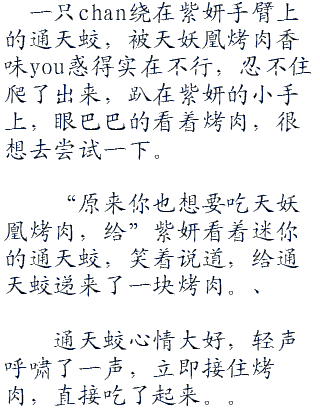 一只chan绕在紫妍手臂上
的通天蛟，被天妖凰烤肉香
味you惑得实在不行，忍不住
爬了出来，趴在紫妍的小手
上，眼巴巴的看着烤肉，很
想去尝试一下。
“原来你也想要吃天妖
凰烤肉，给”紫妍看着迷你
的通天蛟，笑着说道，给通
天蛟递来了一块烤肉。、
通天蛟心情大好，轻声
呼啸了一声，立即接住烤
肉，直接吃了起来。。